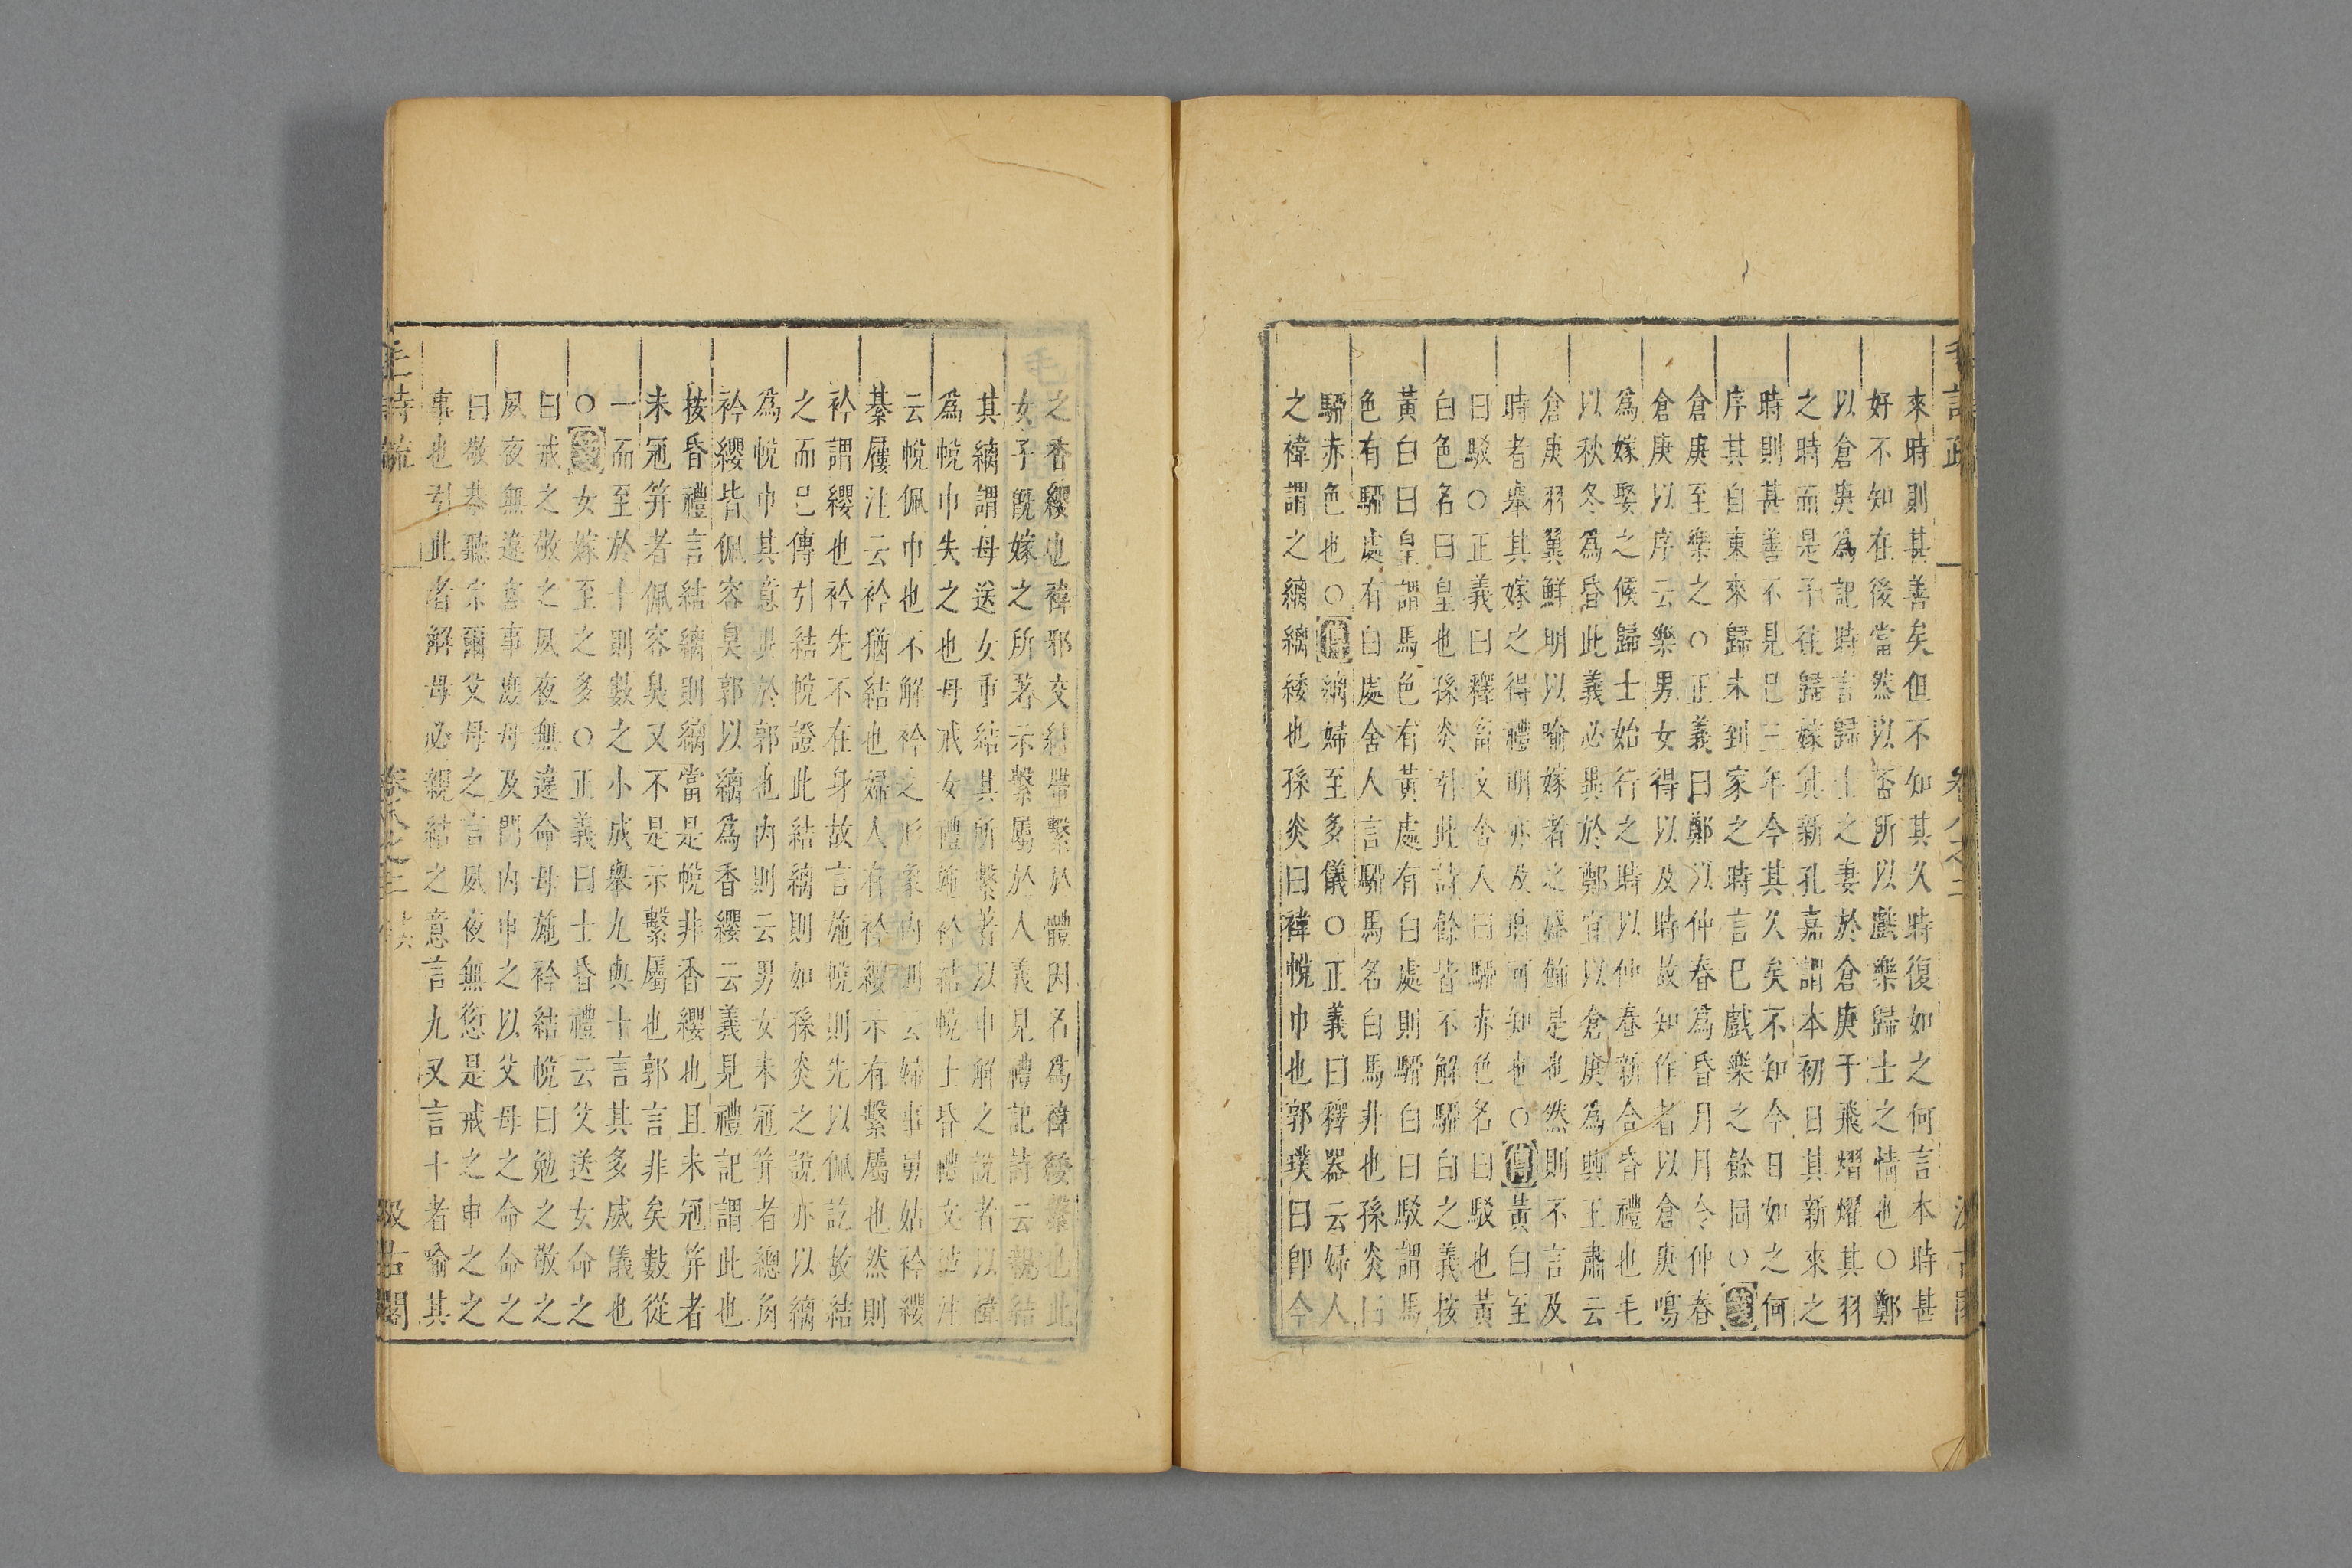 來時則甚善矣但不知其久時復如之何言本時甚
好不知在後當然以否所以戲樂歸士之情也○鄭
以倉庚爲記時言歸士之妻於倉庚于飛熠燿其羽
之時而是子往歸嫁其新孔嘉謂本初日其新來之
時則甚善不見巳三年今其久矣不知今日如之何
序其自東來歸未到家之時言巳戲樂之餘同○箋
倉庚至樂之○正義曰鄭以仲春爲昏月月令仲春
倉庚以序云樂男女得以及時故知作者以倉庚鳴
爲嫁娶之候歸士始行之時以仲春新合昏禮也毛
以秋冬爲昏此義必異於鄭宜以倉庚爲興王肅云
倉庚羽翼鮮明以喻嫁者之盛飾是也然則不言及
時者舉其嫁之得禮明亦及時可知也○傳黃白至
曰駁○正義曰釋畜文舍人曰騮赤色名曰駁也黃
白色名曰皇也孫炎引此詩餘皆不解騮白之義按
黃白曰皇謂馬色有黃處有白處則騮白曰駁謂馬
色有騮處有白處舍人言騮馬名白馬非也孫炎曰
騮赤色也○傳縭婦至多儀○正義曰釋器云婦人
之褘謂之縭縭緌也孫炎曰褘帨巾也郭璞曰卽今
之香纓也褘邪交絡帶繫於體因名爲褘緌繫也此
女子旣嫁之所著示繫屬於人義見禮記詩云親結
其縭謂母送女重結其所繫著以申解之說者以褘
爲帨巾失之也母戒女禮施衿結帨士昏禮文彼注
云帨佩巾也不解衿之形象內則云婦事舅姑衿纓
綦屨注云衿猶結也婦人有衿纓示有繫屬也然則
衿謂纓也衿先不在身故言施帨則先以佩訖故結
之而巳傳引結帨證此結縭則如孫炎之說亦以縭
爲帨巾其意異於郭也內則云男女未冠笄者總角
衿纓皆佩容臭郭以縭爲香纓云義見禮記謂此也
按昏禮言結縭則縭當是帨非香纓也且未冠笄者
未冠笄者佩容臭又不是示繫屬也郭言非矣數從
一而至於十則數之小成舉九與十言其多威儀也
○箋女嫁至之多○正義曰士昏禮云父送女命之
曰戒之敬之夙夜無違命母施衿結帨曰勉之敬之
夙夜無違宮事庶母及門內申之以父母之命命之
曰敬恭聽宗爾父母之言夙夜無愆是戒之申之之
事也引此者解母必親結之意言九又言十者喻其
毛詩疏 卷八之二 汲古閣